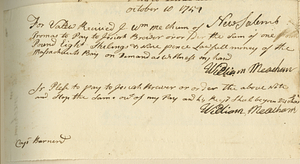 october 10. 1754
For Value Received I Wm meachum of New Salem
Promas to Pay to Josiah Brewer or order the Sum of one
Pound Eight Shelings & Six pence Lawfull money of the
Massachusets Bay on Demand as Witness my hand
William Meacham
Sr Please to pay to Josiah Brewer or order the above Note
and Stop the Same out of my Pay and
William Meacham